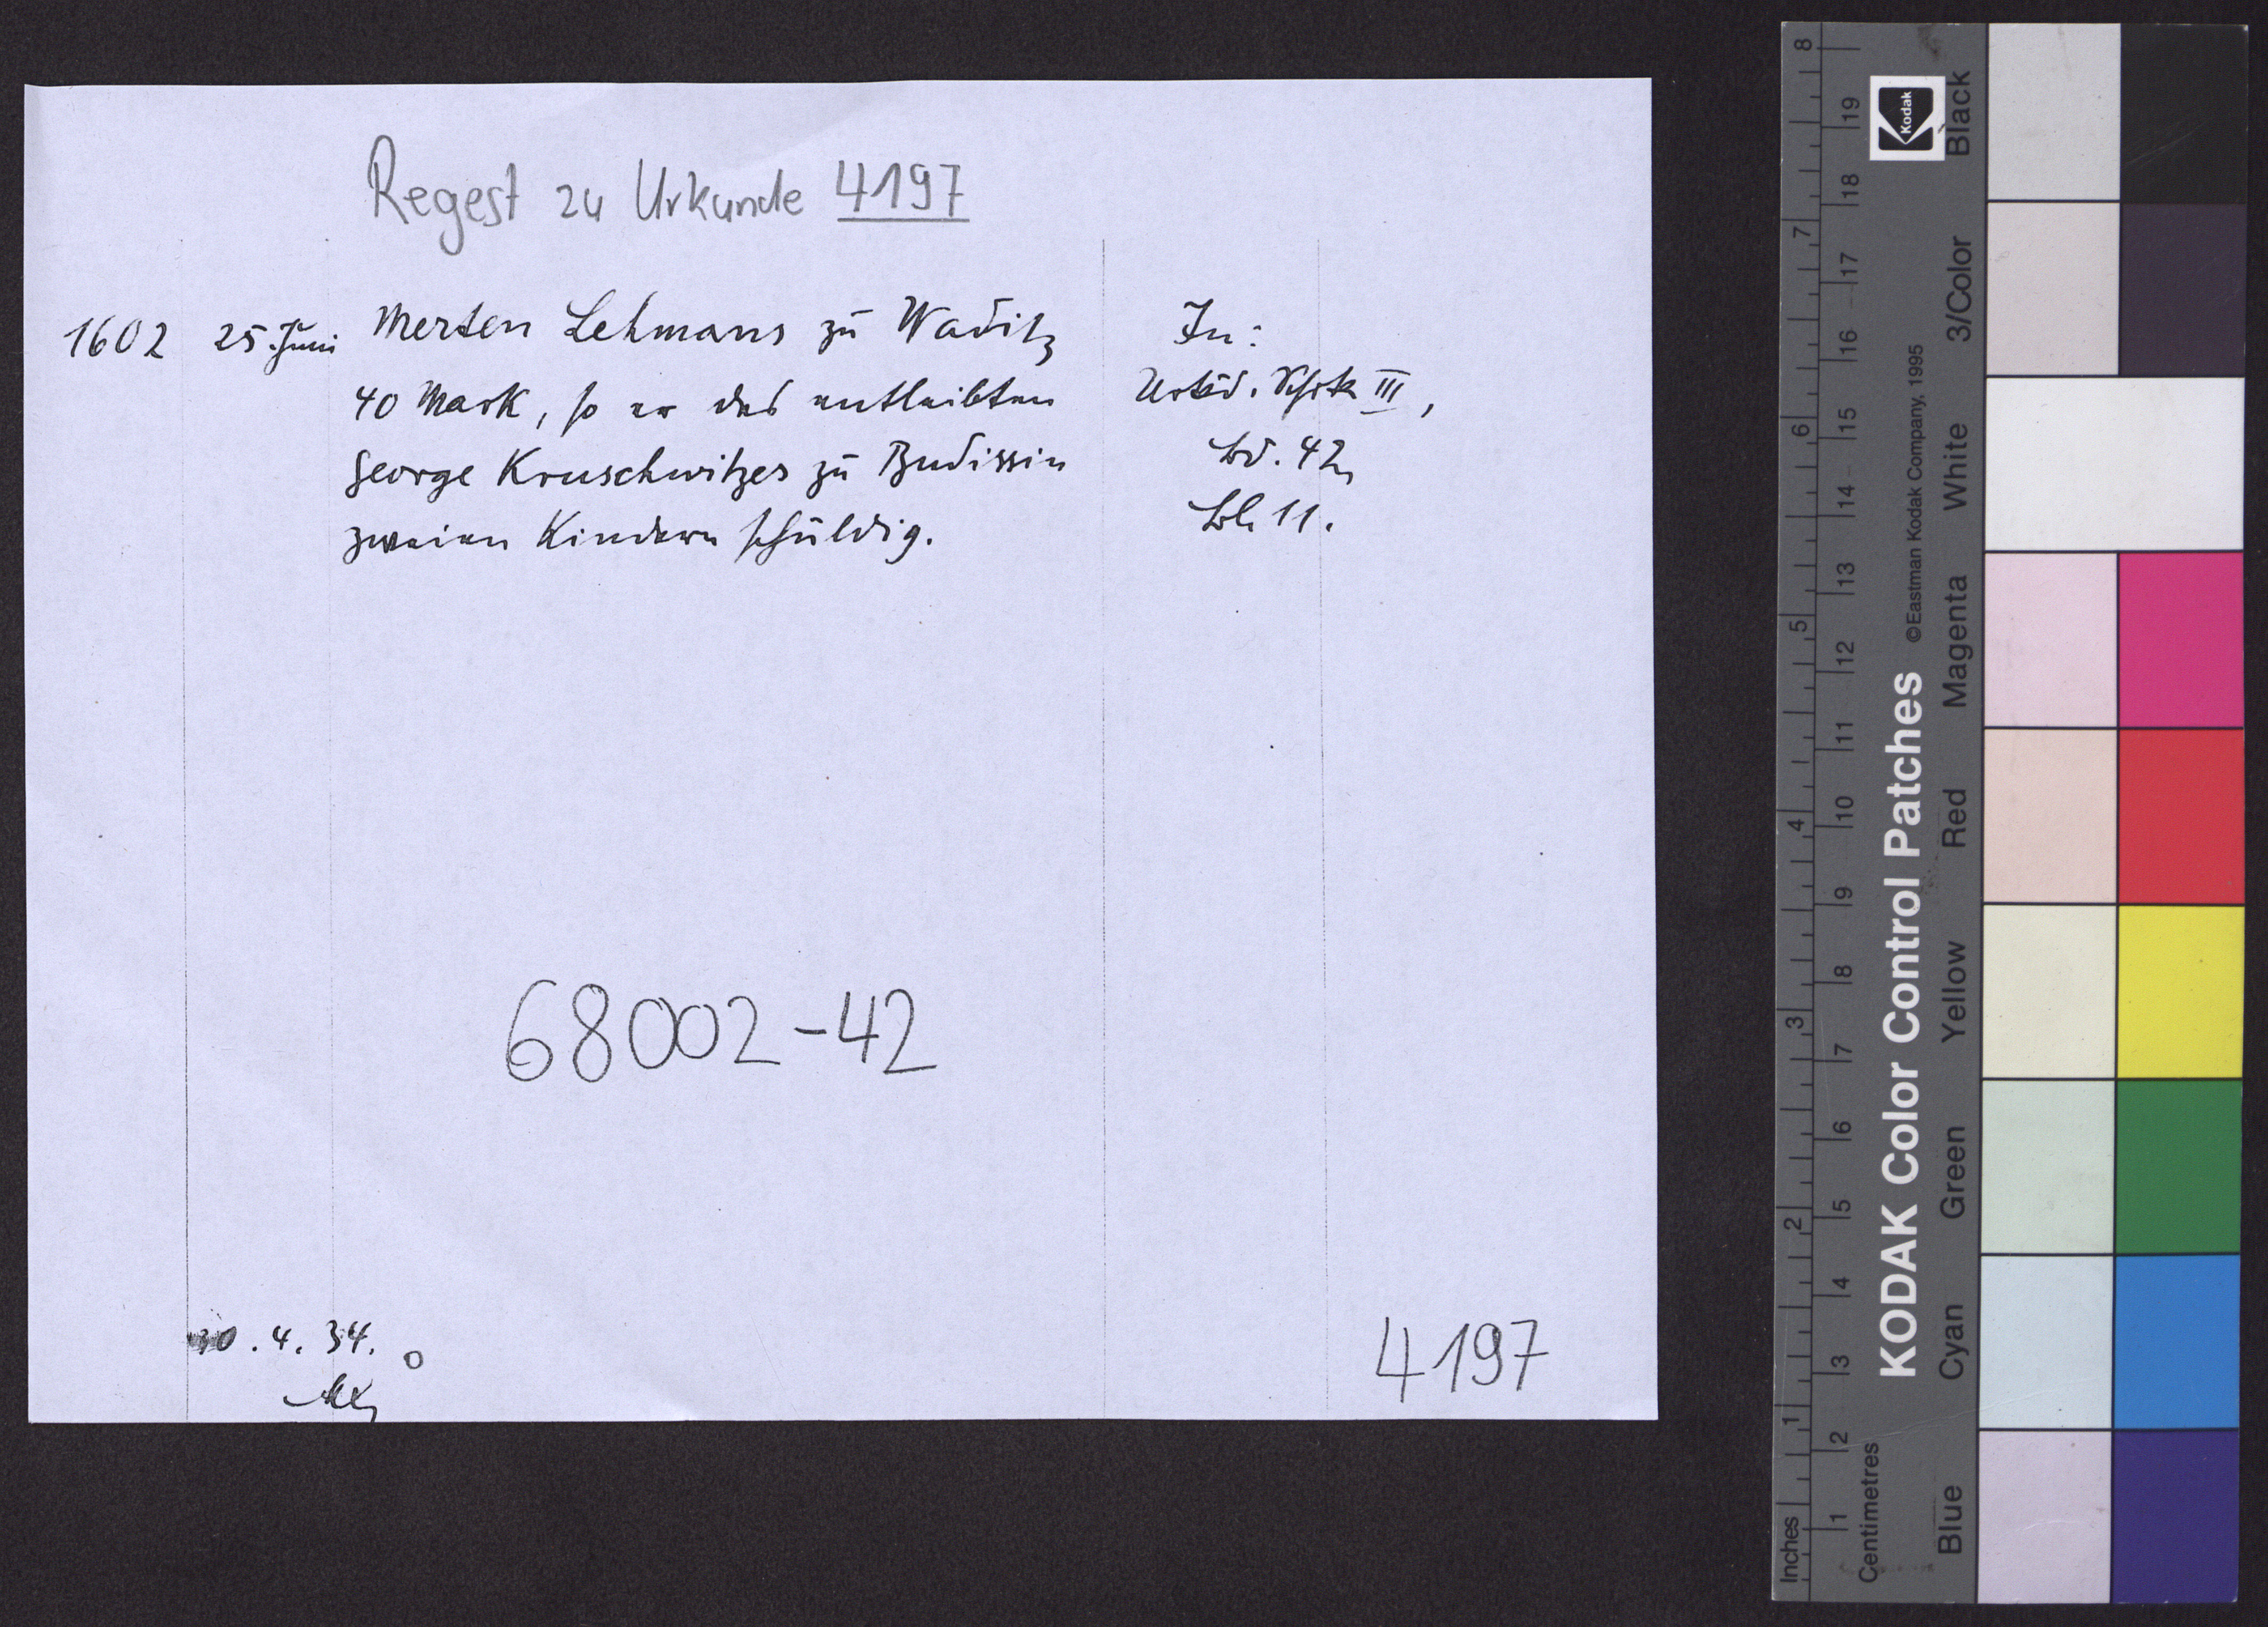 Regest zu Urkunde 4197
1602 25. Juni Merten Lehmans zu Waditz
40 Mark, so er des entleibten
George Kruschwitzes zu Budissin
zweien Kindern schuldig.
In:
III,
Bd. 42,
Bl. 11.
68002-42
30.4.34.
4197
KODAK Color Control Patches ©Eastman Kodak Company, 1995
Kodak
Inches 1 2 3 4 5 6 7 8
Centimetres 1 2 3 4 5 6 7 8 9 10 11 12 13 14 15 16 17 18 19
Blue Cyan Green Yellow Red Magenta White 3/Color Black